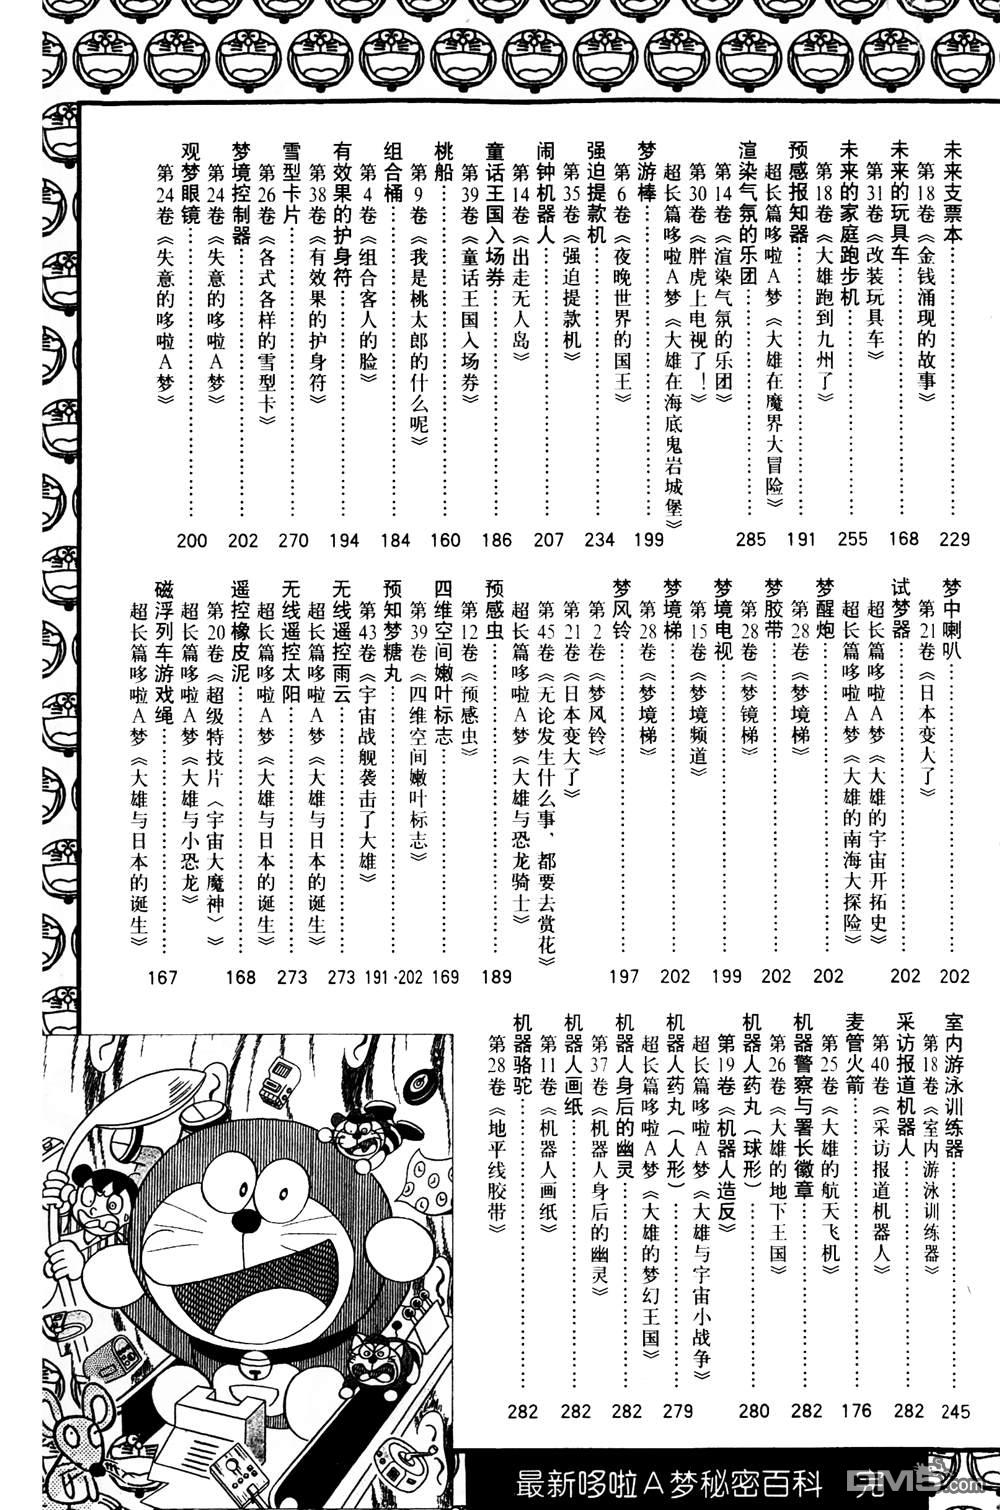 未来支票本……229
第18卷《金钱涌现的故事》
未来的玩具车……168
第31卷《改装玩具车》
未来的家庭跑步机……255
第18卷《大雄跑到九州了》
预感报知器……191
超长篇哆啦A梦《大雄在魔界大冒险》
渲染气氛的乐团……285
第14卷《渲染气氛的乐团》
第30卷《胖虎上电视了！》
超长篇哆啦A梦《大雄在海底鬼岩城堡》
梦游棒……199
第6卷《夜晚世界的国王》
强迫提款机……234
第35卷《强迫提款机》
闹钟机器人……207
第14卷《出走无人岛》
童话王国入场券……186
第39卷《童话王国入场券》
桃船……160
第9卷《我是桃太郎的什么呢》
组合桶……184
第4卷《组合客人的脸》
有效果的护身符……194
第38卷《有效果的护身符》
雪型卡片……270
第26卷《各式各样的雪型卡》
梦境控制器……202
第24卷《失意的哆啦A梦》
观梦眼镜……200
第24卷《失意的哆啦A梦》
梦中喇叭……202
第21卷《日本变人了》
试梦器……202
超长篇哆啦A梦《大雄的宇宙开拓史》
超长篇哆啦A梦《大雄的南海大探险》
梦醒炮……202
第28卷《梦境梯》
梦胶带……202
第28卷《梦镜梯》
梦境电视……199
第15卷《梦境频道》
梦境梯……202
第28卷《梦境梯》
梦风铃……197
第2卷《梦风铃》
第21卷《日本变大了》
第45卷《无论发生什么事、都要去赏花》
超长篇哆啦A梦《大雄与恐龙骑士》
预感虫……189
第12卷《预感虫》
四维空间嫩叶标志……169
第39卷《四维空间嫩叶标志》
预知梦糖丸……191·202
第43卷《宇宙战舰袭击了大雄》
无线遥控雨云……273
超长篇哆啦A梦《大雄与日本的诞生》
无线遥控太阳……273
超长篇哆啦A梦《大雄与日本的诞生》
遥控橡皮泥……168
第20卷《超级特技片〈宇宙大魔神〉》
超长篇哆啦A梦《大雄与小恐龙》
磁浮列车游戏绳……167
超长篇哆啦A梦《大雄与日本的诞生》
室内游泳训练器……245
第18卷《室内游泳训练器》
采访报道机器人……282
第40卷《采访报道机器人》
麦管火箭……176
第25卷《大雄的航天飞机》
机器警察与署长徽章……282
第26卷《大雄的地下王国》
机器人药丸（球形）……280
第19卷《机器人造反》
超长篇哆啦A梦《大雄与宇宙小战争》
机器人药丸（人形）……279
超长篇哆啦A梦《大雄的梦幻王国》
机器人身后的幽灵……282
第37卷《机器人身后的幽灵》
机器人画纸……282
第11卷《机器人画纸》
机器骆驼……282
第28卷《地平线胶带》
最新哆啦A梦秘密百科 完